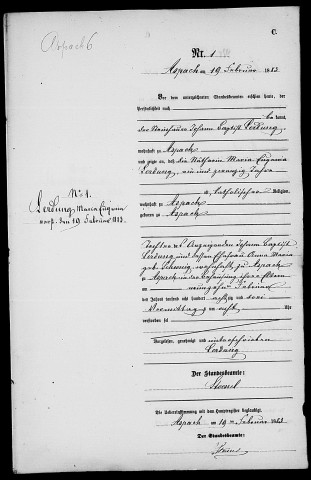 Aspach 6
C.
Nr. 1
Aspach am 19 Februar 1883
Vor dem unterzeichneten Standesbeamten erschien heute, der
Persönlichkeit nach
kannt,
der Johann Baptist Verdung
wohnhaft zu Aspach
und zeigte an, daß die Maria Eugenia
Verdung, ein und zwanzig Jahre
alt, katholischer Religion,
wohnhaft zu Aspach
geboren zu Aspach
Tochter des Anzeigenden Johann Baptist
Verdung und dessen Ehefrau Anna Maria
geb. wohnhaft zu Aspach
zu Aspach in der Behausung ihrer Eltern
am neunzehn ten Februar
des Jahres tausend acht hundert achtzig und drei
Vormittags um acht Uhr
verstorben sei
Vorgelesen, genehmigt und unterschrieben
Verdung
Der Standesbeamte:
Die Uebereinstimmung mit dem Hauptregister beglaubigt.
Aspach am 19 ten Februar 1883
Der Standesbeamte:
No 1.
Verdung Maria Eugenia
verst. den 19 Februar 1883.